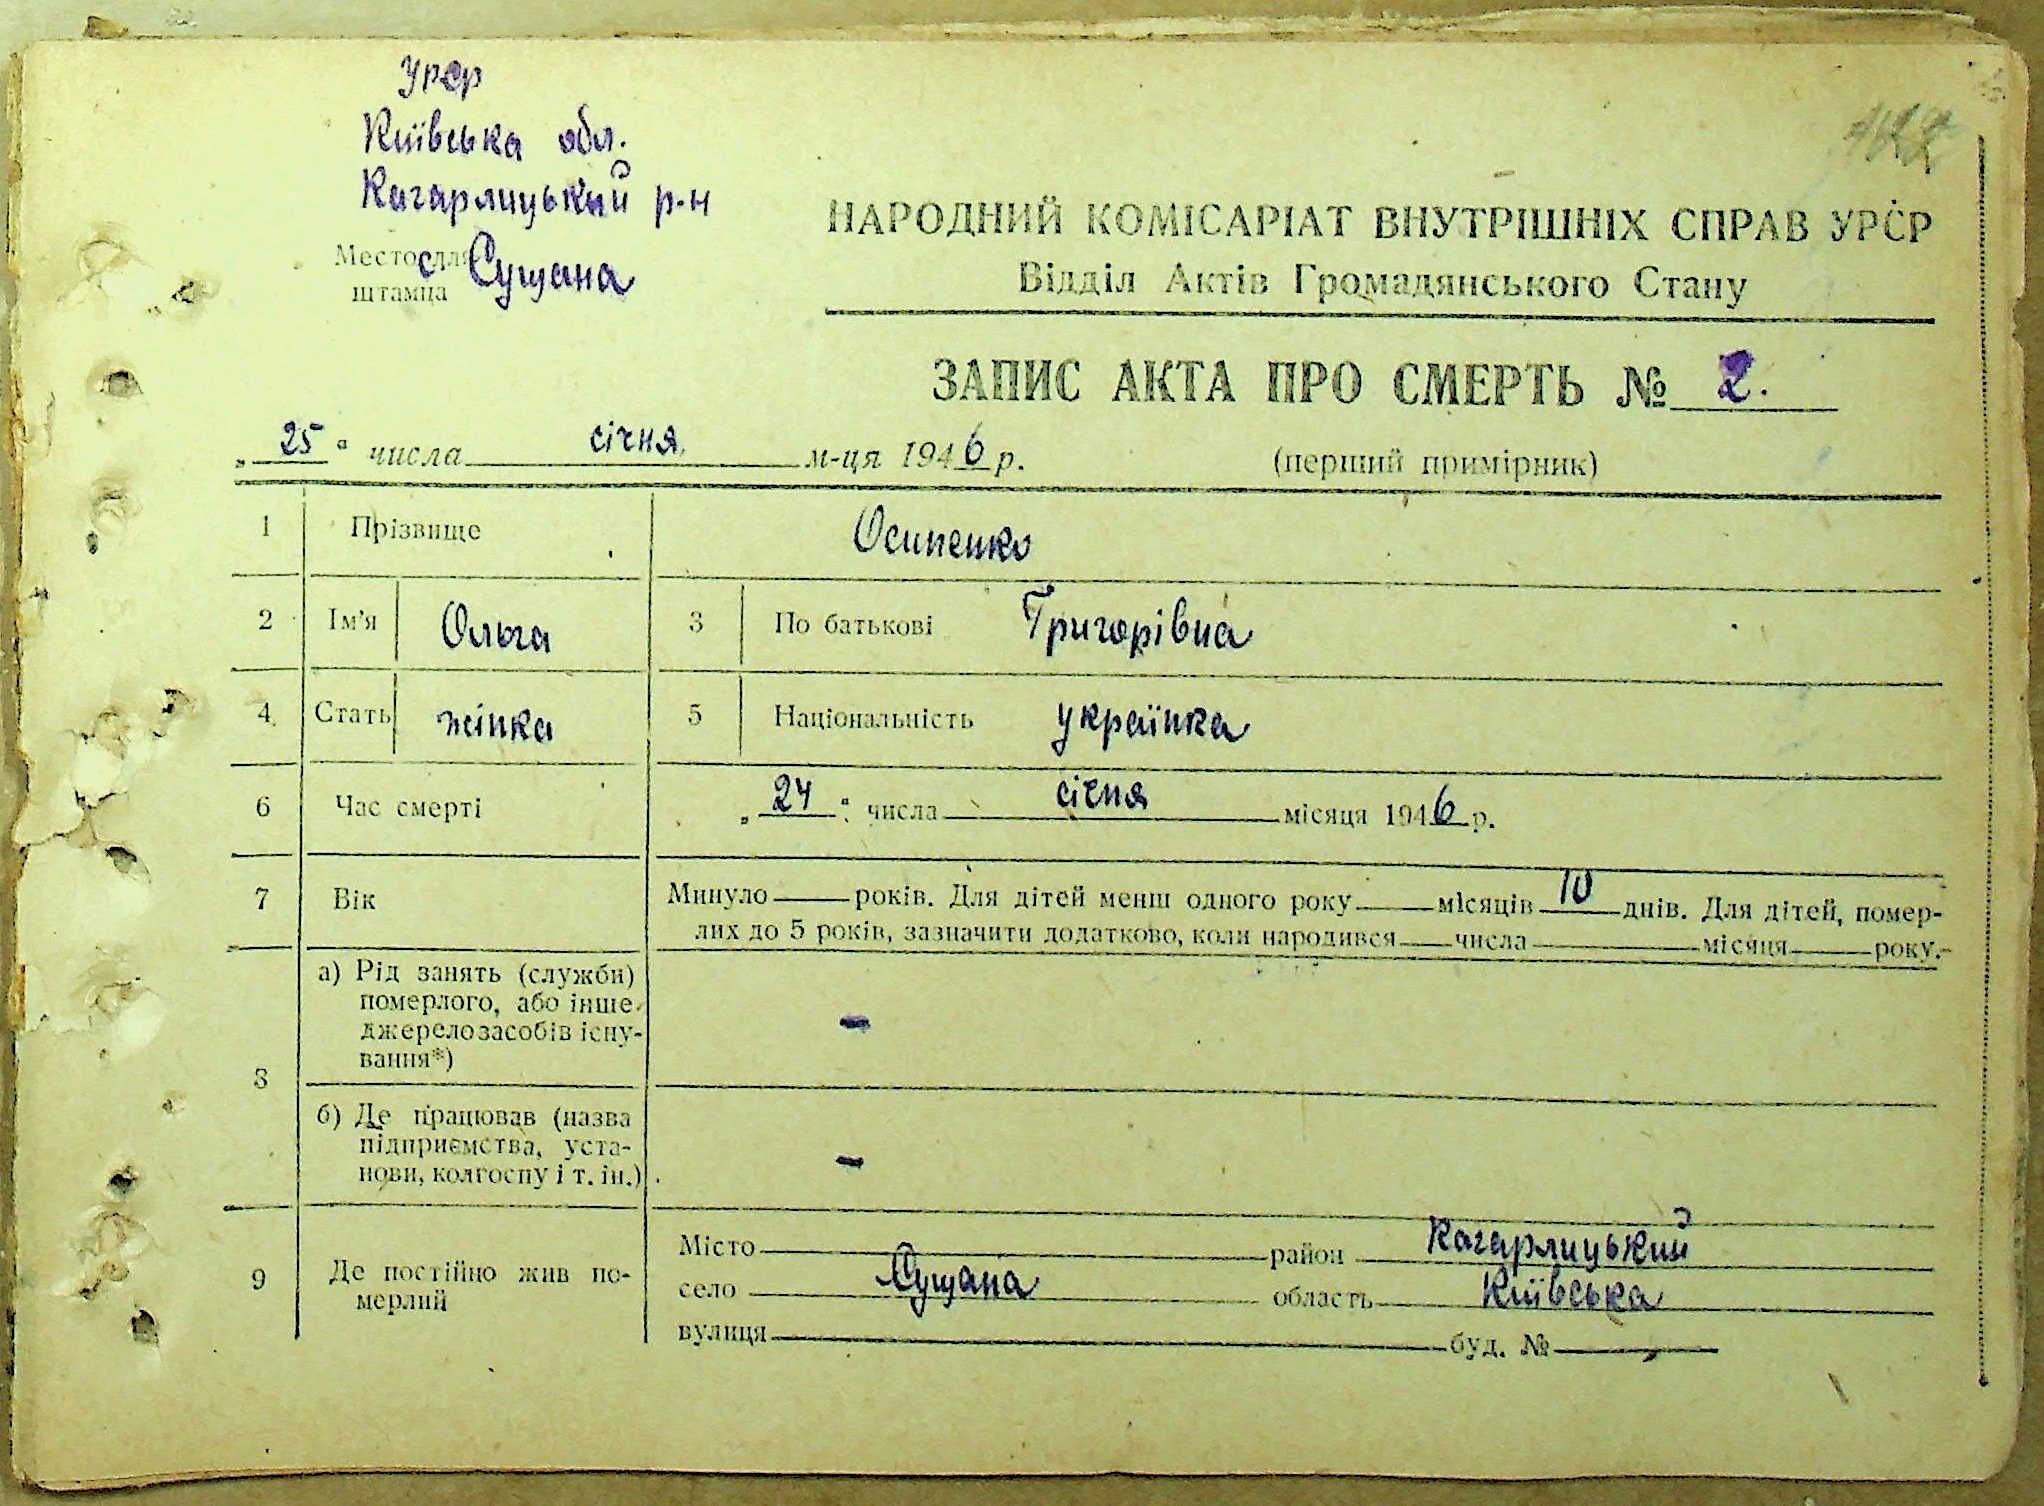 УРСР
Київська обл.
Кагарлицький р-н
Место для
штампа
с. Сущана
НАРОДНИЙ КОМІСАРІАТ ВНУТРІШНІХ СПРАВ УРСР
Відділ Актів Громадянського Стану
ЗАПИС АКТА ПРО СМЕРТЬ № 2.
„25“ числа січня м-ця 1946 р.
(перший примірник)
1 Прізвище Осипенко
2 Ім'я Ольга 3 По батькові Григорівна
4 Стать жінка 5 Національність українка
6 Час смерті „24“ числа січня місяця 1946 р.
7 Вік Минуло — років. Для дітей менш одного року — місяців 10 днів. Для дітей, помер-
лих до 5 років, зазначити додатково, коли народився — числа — місяця — року.
8 а) Рід занять (служби)
померлого, або інше
джерело засобів існу-
вання*) –
б) Де працював (назва
підприємства, уста-
нови, колгоспу і т. ін.) –
9 Де постійно жив по-
мерлий
Місто район Кагарлицький
село Сущана область Київська
вулиця буд. №